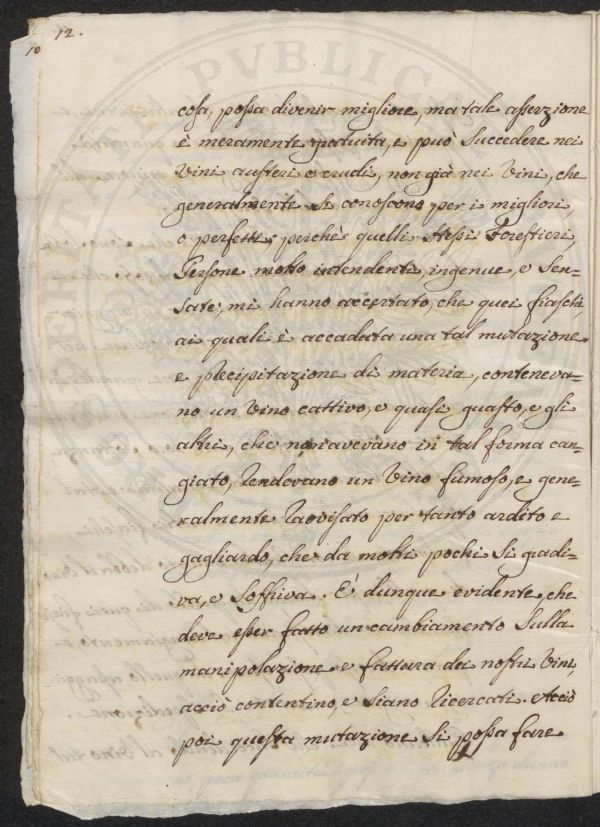 12.
10
cosa, possa divenir migliore, ma tale asserzione
è meramente gratuita, e può succedere nei
Vini austeri o crudi, non già nei Vini, che
generalmente si conoscono per i migliori,
o perfetti; perchè quelli stessi Forestieri,
Persone molto intendenti, ingenue, e Sen=
sate, mi hanno accertato, che quei fiaschi,
ai quali è accaduta una tal mutazione
e precipitazione di materia, conteneva=
no un Vino cattivo, e quasi guasto, e gli
altri, che non avevano in tal forma can=
giato, rendevano un Vino fumoso, e gene=
ralmente ravvisato per tanto ardito e
gagliardo, che da molti pochi si gradi=
va, e soffriva. E' dunque evidente, che
deve esser fatto un cambiamento sulla
manipolazione e fattura dei nostri Vini,
acciò contentino, e siano ricercati. Acciò
poi questa mutazione si possa fare
PVBLICA